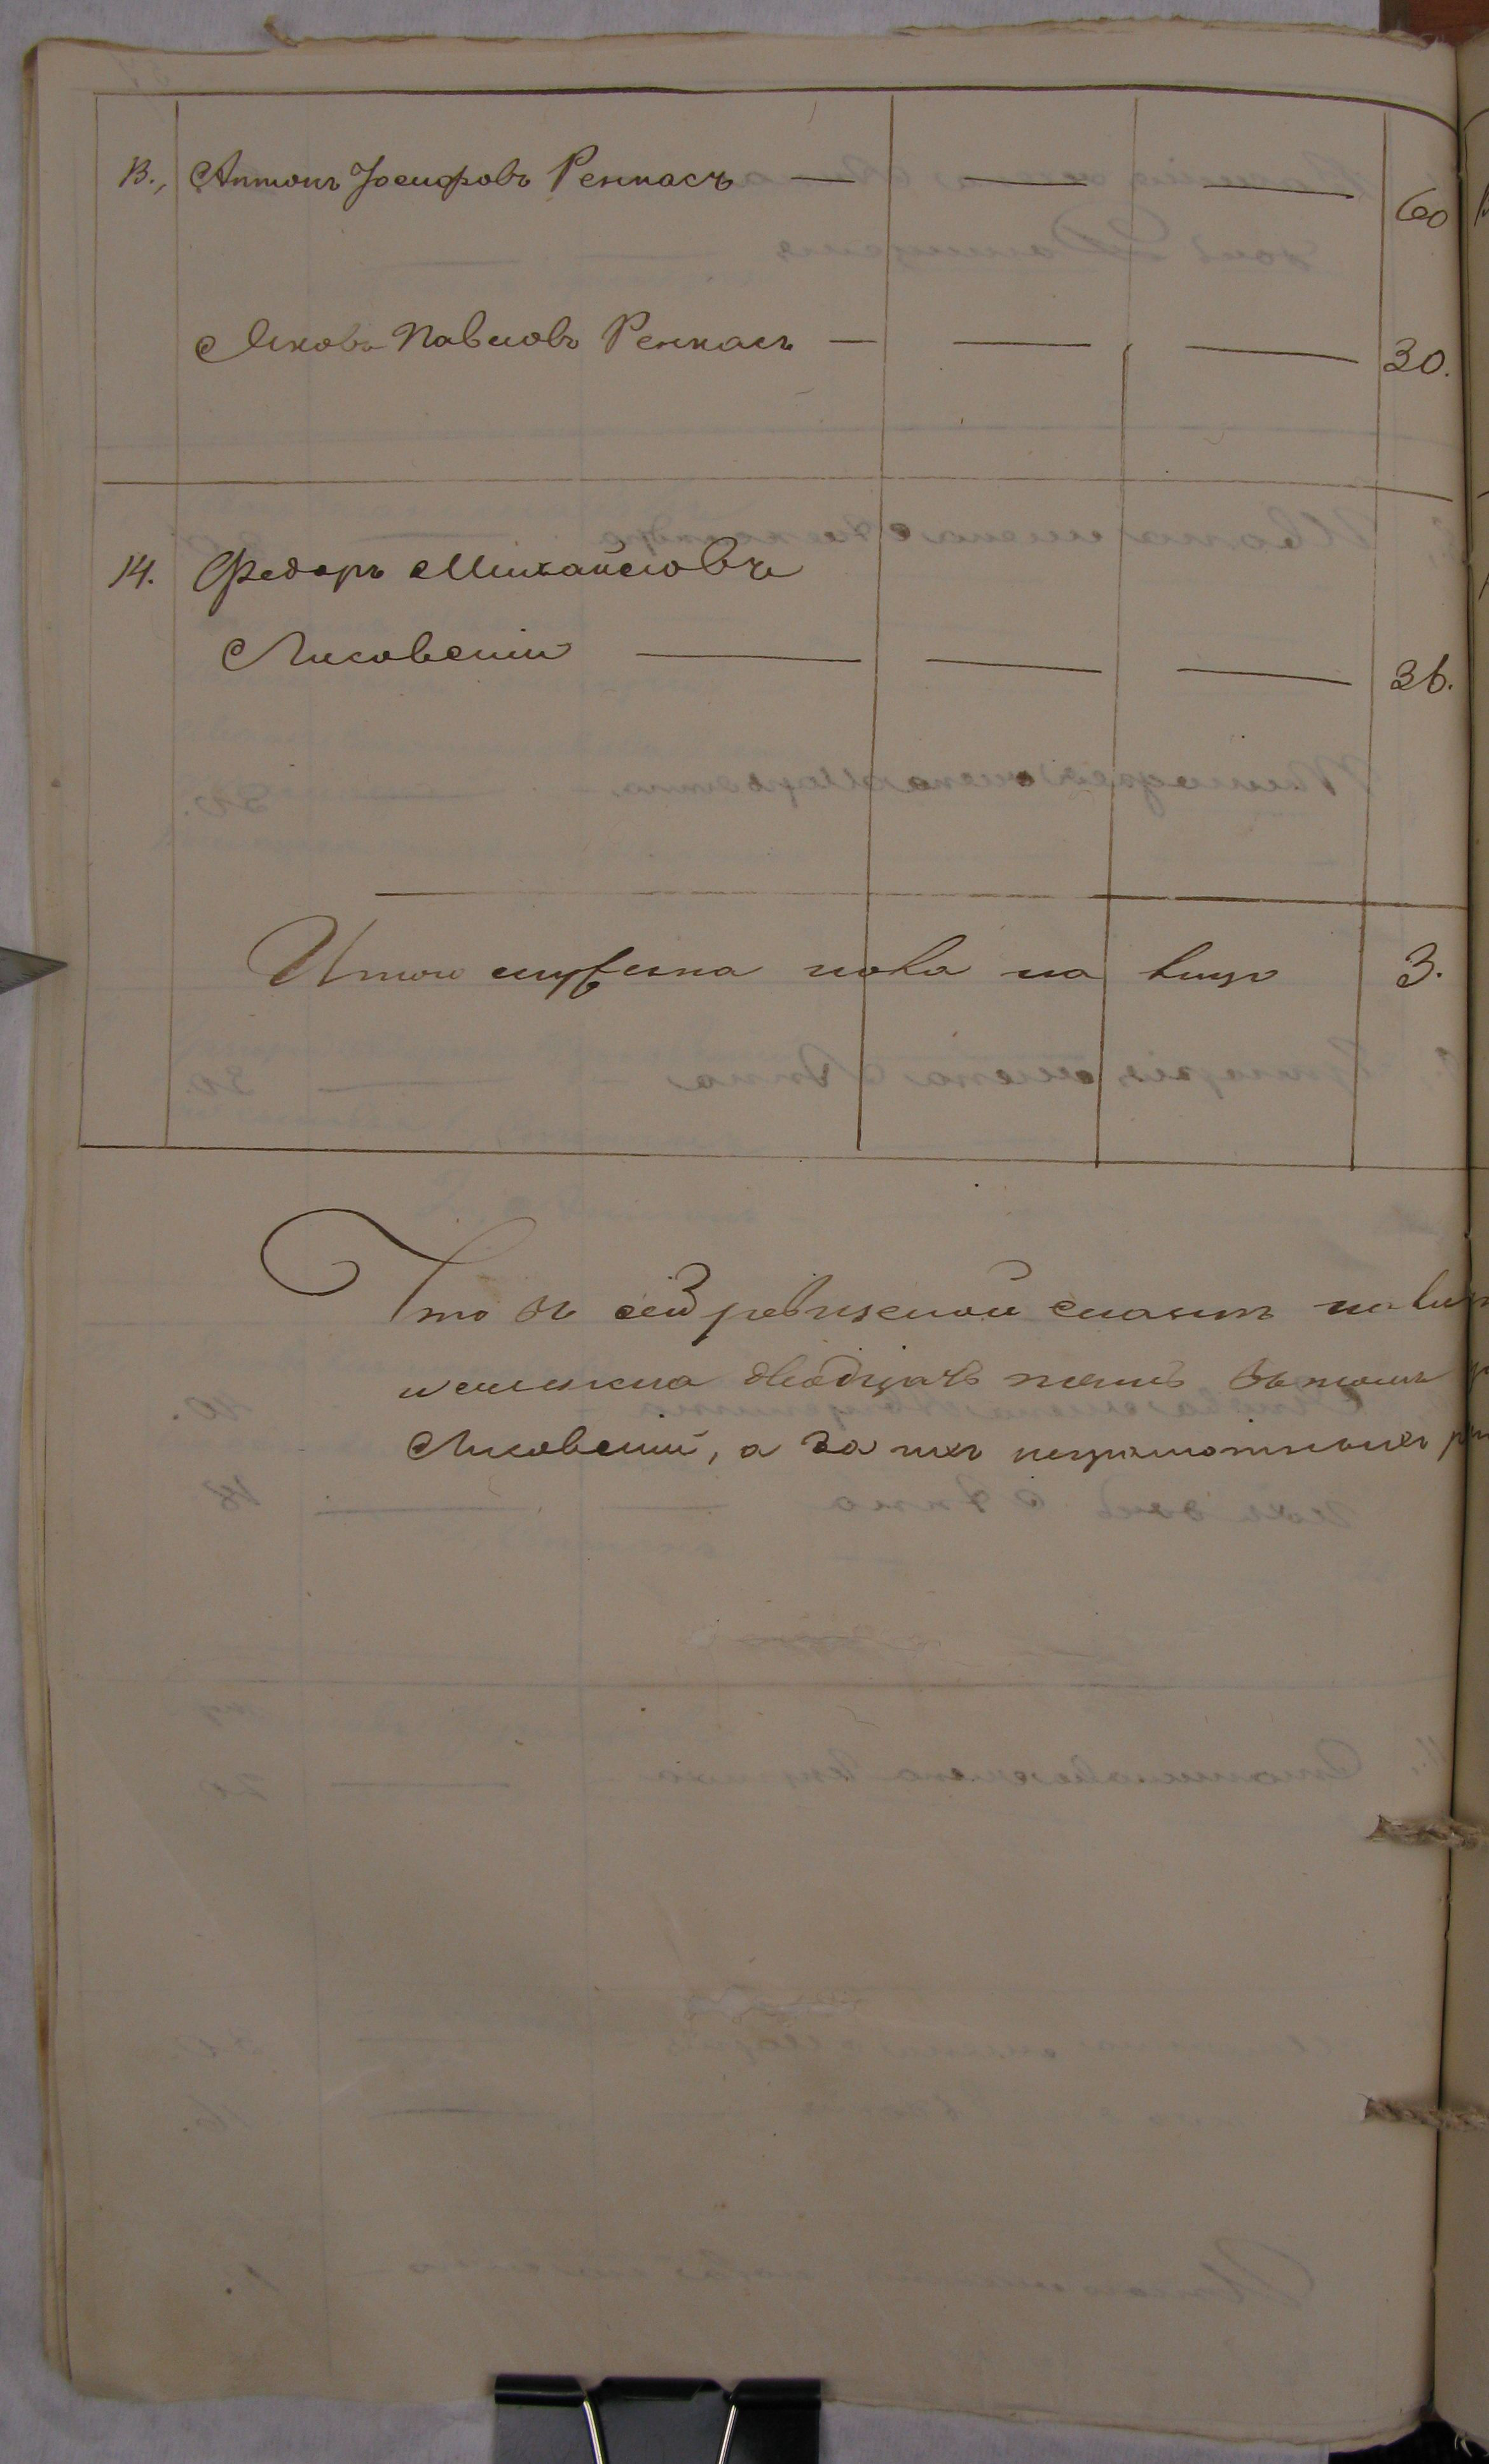 13., Антонъ Іосифовъ Ренкасъ — — — 60
Яковъ Павловъ Ренкасъ — — — 30.
14. Федоръ Михайловъ
Лисовскій — — — 36.
Итого мужеска пола на лицо 3.
Что въ сей ревижской сказкѣ
двадцать въ томъ
Лисовскій, а за нихъ неграмотныхъ